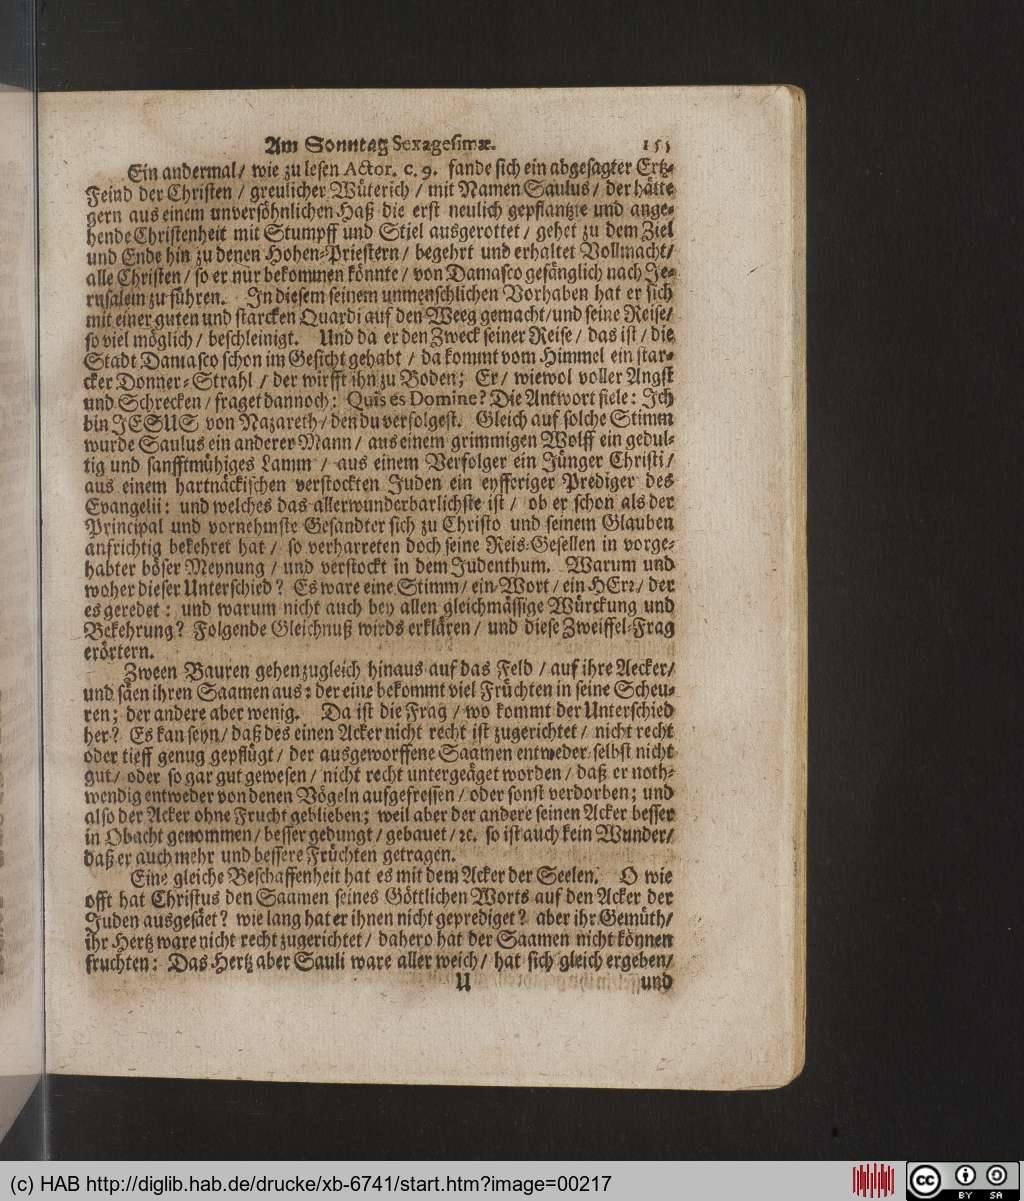 Am Sonntag Sexagesimæ. 153
Ein andermal / wie zu lesen Actor. c. 9. fande sich ein abgesagter Ertz-
Feind der Christen / greulicher Wüterich / mit Namen Saulus / der hätte
gern aus einem unversöhnlichen Haß die erst neulich gepflantzte und ange-
hende Christenheit mit Stumpff und Stiel ausgerottet / gehet zu dem Ziel
und Ende hin zu denen Hohen-Priestern / begehrt und erhaltet Vollmacht /
alle Christen / so er nur bekommen könnte / von Damasco gefänglich nach Je-
rusalem zu führen. In diesem seinem unmenschlichen Vorhaben hat er sich
mit einer guten und starcken Quardi auf den Weeg gemacht / und seine Reise /
so viel möglich / beschleinigt. Und da er den Zweck seiner Reise / das ist / die
Stadt Damasco schon im Gesicht gehabt / da kommt vom Himmel ein star-
cker Donner-Strahl / der wirfft ihn zu Boden; Er / wiewol voller Angst
und Schrecken / fraget dannoch: Quis es Domine? Die Antwort fiele: Ich
bin JESUS von Nazareth / den du verfolgest. Gleich auf solche Stimm
wurde Saulus ein anderer Mann / aus einem grimmigen Wolff ein gedul-
tig und sanfftmühiges Lamm / aus einem Verfolger ein Jünger Christi /
aus einem hartnäckischen verstockten Juden ein eyfferiger Prediger des
Evangelii: und welches das allerwunderbarlichste ist / ob er schon als der
Principal und vornehmste Gesandter sich zu Christo und seinem Glauben
aufrichtig bekehret hat / so verharreten doch seine Reis-Gesellen in vorge-
habter böser Meynung / und verstockt in dem Judenthum. Warum und
woher dieser Unterschied? Es ware eine Stimm / ein Wort / ein HErr / der
es geredet: und warum nicht auch bey allen gleichmässige Würckung und
Bekehrung? Folgende Gleichnuß wirds erklären / und diese Zweiffel-Frag
erörtern.
Zween Bauren gehen zugleich hinaus auf das Feld / auf ihre Aecker /
und säen ihren Saamen aus: der eine bekommt viel Früchten in seine Scheu-
ren; der andere aber wenig. Da ist die Frag / wo kommt der Unterschied
her? Es kan seyn / daß des einen Acker nicht recht ist zugerichtet / nicht recht
oder tieff genug gepflügt / der ausgeworffene Saamen entweder selbst nicht
gut / oder so gar gut gewesen / nicht recht untergeäget worden / daß er noth-
wendig entweder von denen Vögeln aufgefressen / oder sonst verdorben; und
also der Acker ohne Frucht geblieben; weil aber der andere seinen Acker besser
in Obacht genommen / besser gedungt / gebauet / ꝛc. so ist auch kein Wunder /
daß er auch mehr und bessere Früchten getragen.
Eine gleiche Beschaffenheit hat es mit dem Acker der Seelen. O wie
offt hat Christus den Saamen seines Göttlichen Worts auf den Acker der
Juden ausgesäet? wie lang hat er ihnen nicht geprediget? aber ihr Gemüth /
ihr Hertz ware nicht recht zugerichtet / dahero hat der Saamen nicht können
fruchten: Das Hertz aber Sauli ware aller weich / hat sich gleich ergeben /
U und
(c) HAB http://diglib.hab.de/drucke/xb-6741/start.htm?image=00217
cc BY SA